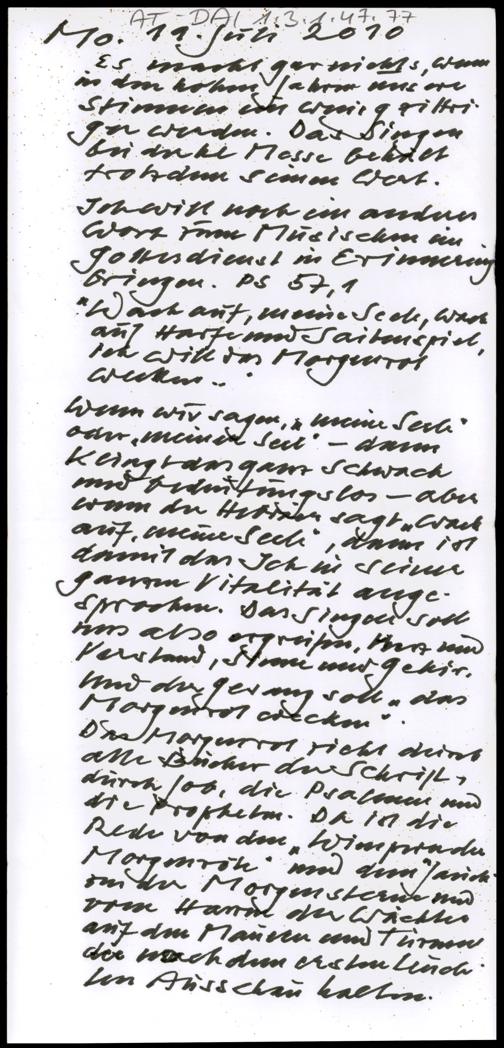 AT-DAI 1.3.1.47.77
Mo. 19. Juli 2010
Es macht gar nichts, wenn
in den hohen Jahren unsere
Stimmen ein wenig zittri-
ger werden. Das Singen
bei der hl Messe behält
trotzdem seinen Wert.
Ich will noch ein anderes
Wort zum Musischen im
Gottesdienst in Erinnerung
bringen. PS 57,1
"Wach auf, meine Seele, wach
auf Harfe und Saitenspiel,
ich will das Morgenrot
wecken.."
Wenn wir sagen, "meine Seele"
oder "meiner Seel" - dann
klingt das ganz schwach
und bedeutungslos - aber
wenn der Hebräer sagt "Wach
auf, meine Seele", dann ist
damit das Ich in seiner
ganzen Vitalität ange-
sprochen. Das Singen soll
uns also ergreifen, Herz und
Verstand, Stimme und Gehör.
Und der Gesang soll "das
Morgenrot wecken".
Das Morgenrot zieht durch
alle Bücher der Schrift,
durch Job, die Psalmen und
die Propheten. Da ist die
Rede von den "Wimpern der
Morgenröte" und dem "Jauch-
zen der Morgensterne und
vom Harren der Wächter
auf den Mauern und Türmen
die nach dem ersten Leuch-
ten Ausschau halten.